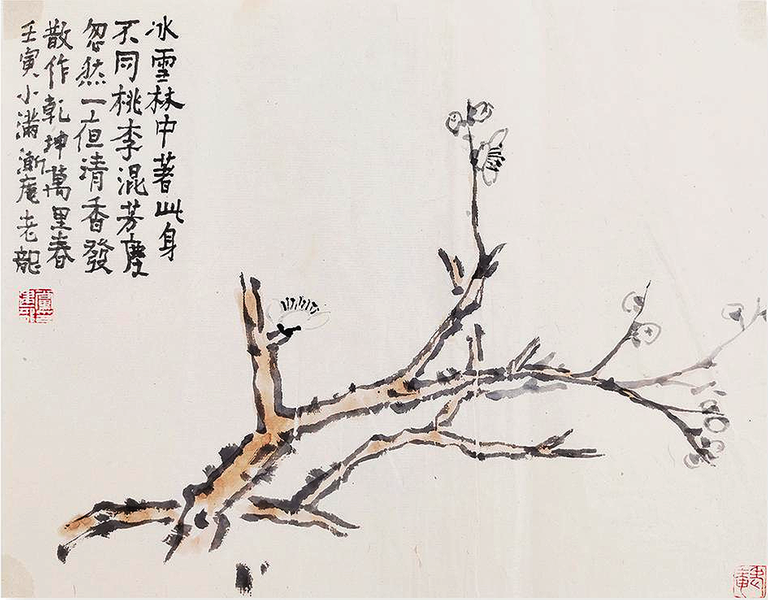 冰雪林中著此身
不同桃李混芳塵
忽然一夜清香發
散作乾坤萬里春
壬寅小滿漸庵老龍